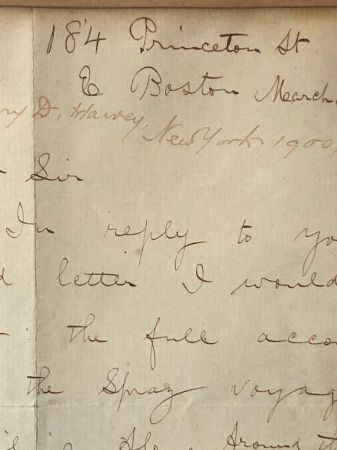 184 Princeton St
E Boston March
ry D. Harvey. New York 1900,
Sir
In reply to yo
d letter I would
the full acco
the Spray voyag
Around th